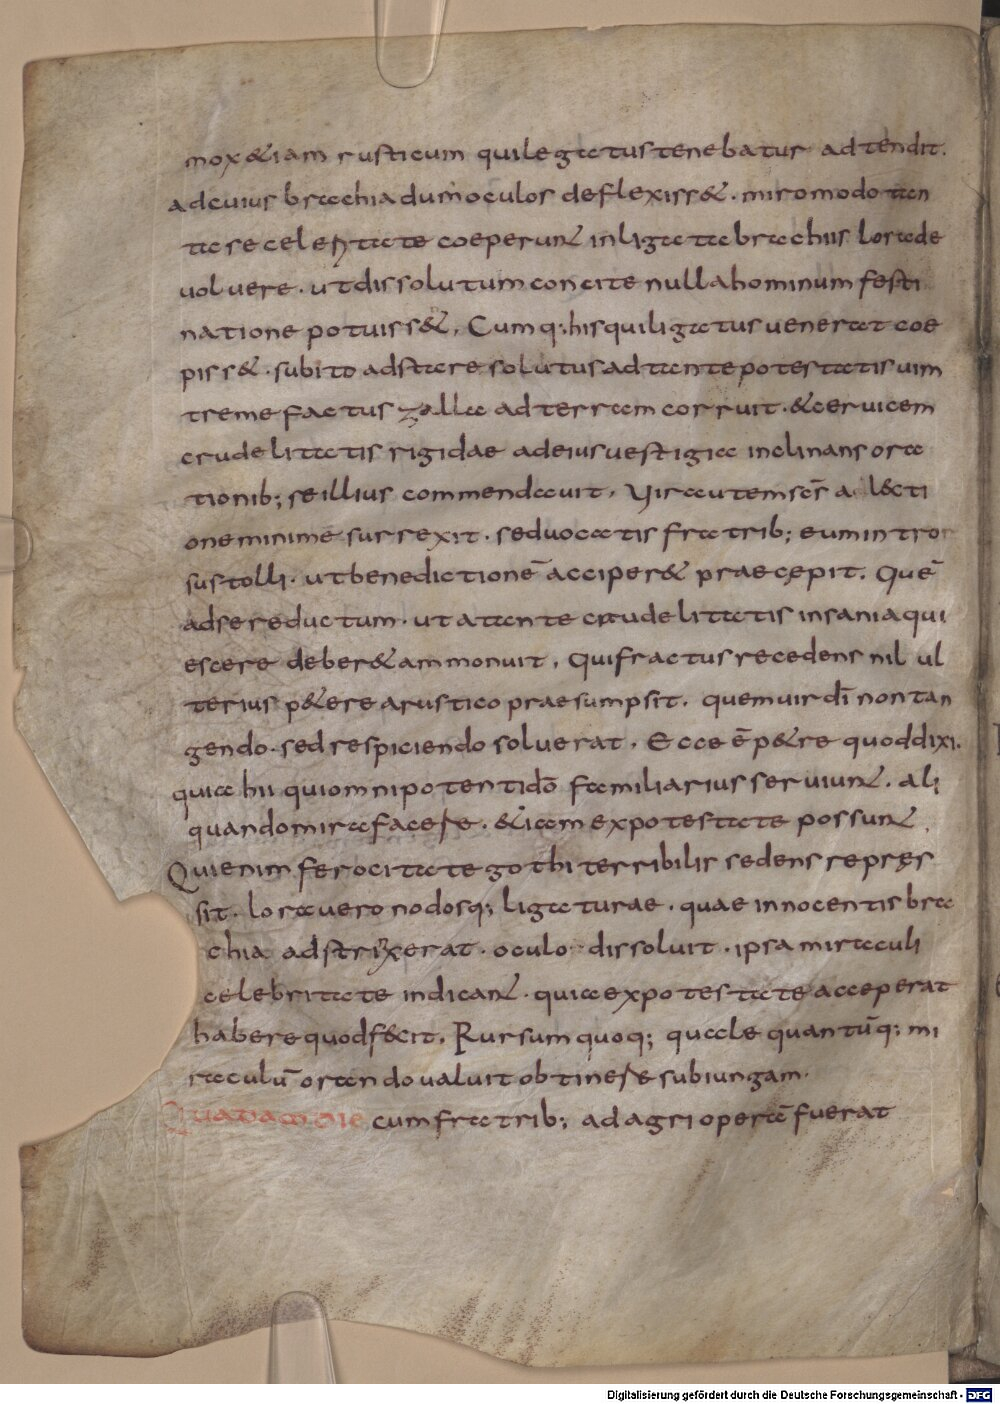 mox & iam rusticum qui legatus tenebatur adtendit.
ad cuius brachia dum oculos deflexiss&. miro modo tan
ta se celeritate coeperun& inligata brachiis lora de
volvere. ut dissolutum concite nulla hominum festi
natione potuiss&. Cumq; his qui ligatus venerat coe
piss&. subito adstare solutus ad tante potestatis vim
tremefactus zalla ad terram corruit. & cervicem
crudelitatis rigidae ad eius vestigia inclinans ora
tionib; se illius commendavit. Vir autem sc̄s a l&cti
one minime surrexit. sed vocatis fratrib; eum intror
sus tolli. ut benedictionē acciper& praecępit. Quē
ad se reductum. ut a tante crudelitatis insania qui
escere deber& ammonuit. Qui fractus recedens nil ul
terius p&ere a rustico praesumpsit. quem vir dī non tan
gendo. sed respiciendo solverat. Ecce ē p&re quod dixi.
quia hii qui omnipotenti dō familiarius serviun&. ali
quando mira facere. &iam ex potestate possun&.
Qui enim ferocitate gothi terribilis sedens repręs
sit. lora vero nodosq; ligaturae. quae innocentis bra
chia adstrixerat. oculo dissoluit. ipsa miraculi
celebritate indican&. quia ex potestate acceperat
habere quod fecit. Rursum quoq; quale quantūq; mi
raculū orando valuit obtinere subiungam.
QUADAM DIE cum fratrib; ad agri operā fuerat
Digitalisierung gefördert durch die Deutsche Forschungsgemeinschaft - DFG